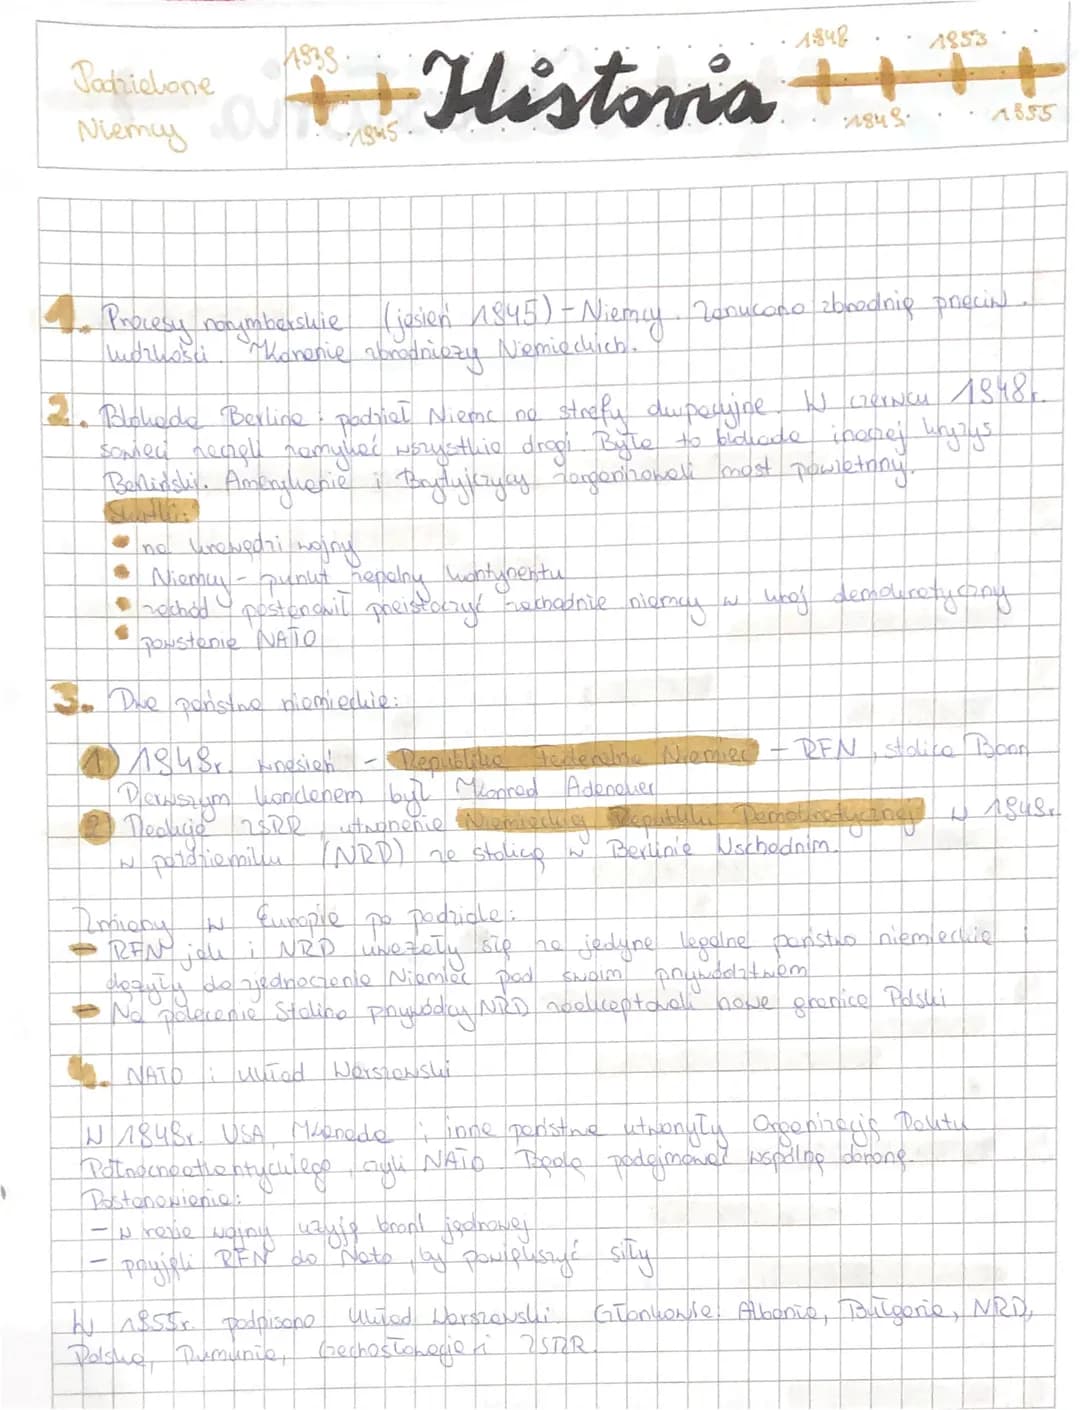 Podzielone
Niemcy
1939
1945
Historia
1948
1949
1953
1955
1. Procesy norymberskie (jesień 1945) - Niemcy. Zarzucono zbrodnię przeciw
ludzkości. Karanie zbrodniczy Niemieckich.
2. Blokada Berlina: podział Niemc na strefy okupacyjne. W czerwcu 1948r.
sowieci zaczęli zamykać wszystkie drogi. Była to blokada inaczej kryzys
Berliński. Amerykanie i Brytyjczycy zorganizowali most powietrzny.
Skutki:
• na krawędzi wojny
• Niemcy - punkt zapalny kontynentu
• zachód postanowił przeistoczyć zachodnie niemcy w kraj demokratyczny
• powstanie NATO
3. Dwa państwa niemieckie:
1) 1949r. wrzesień - Republika Federalna Niemiec - RFN, stolica Bonn
Pierwszym kanclerzem był Konrad Adenauer
2) Reakcja ZSRR, utworzenie Niemieckiej Republiki Demokratycznej w 1949r.
w październiku (NRD) ze stolicą w Berlinie Wschodnim.
Zmiany w Europie po podziale:
- RFN jak i NRD uważały się za jedyne legalne państwo niemieckie
dążyły do zjednoczenia Niemiec pod swoim przywództwem
- Na polecenie Stalina przywódcy NRD zaakceptowali nowe granice Polski
4. NATO i układ Warszawski
W 1949r. USA, Kanada i inne państwa utworzyły Organizację Paktu
Północnoatlantyckiego, czyli NATO. Będą podejmować wspólną obronę.
Postanowienia:
- w razie wojny użyją broni jądrowej
- przyjęli RFN do Nato, by powiększyć siły
W 1955r. podpisano Układ Warszawski. Członkowie: Albania, Bułgaria, NRD,
Polska, Rumunia, Czechosłowacja i ZSRR.